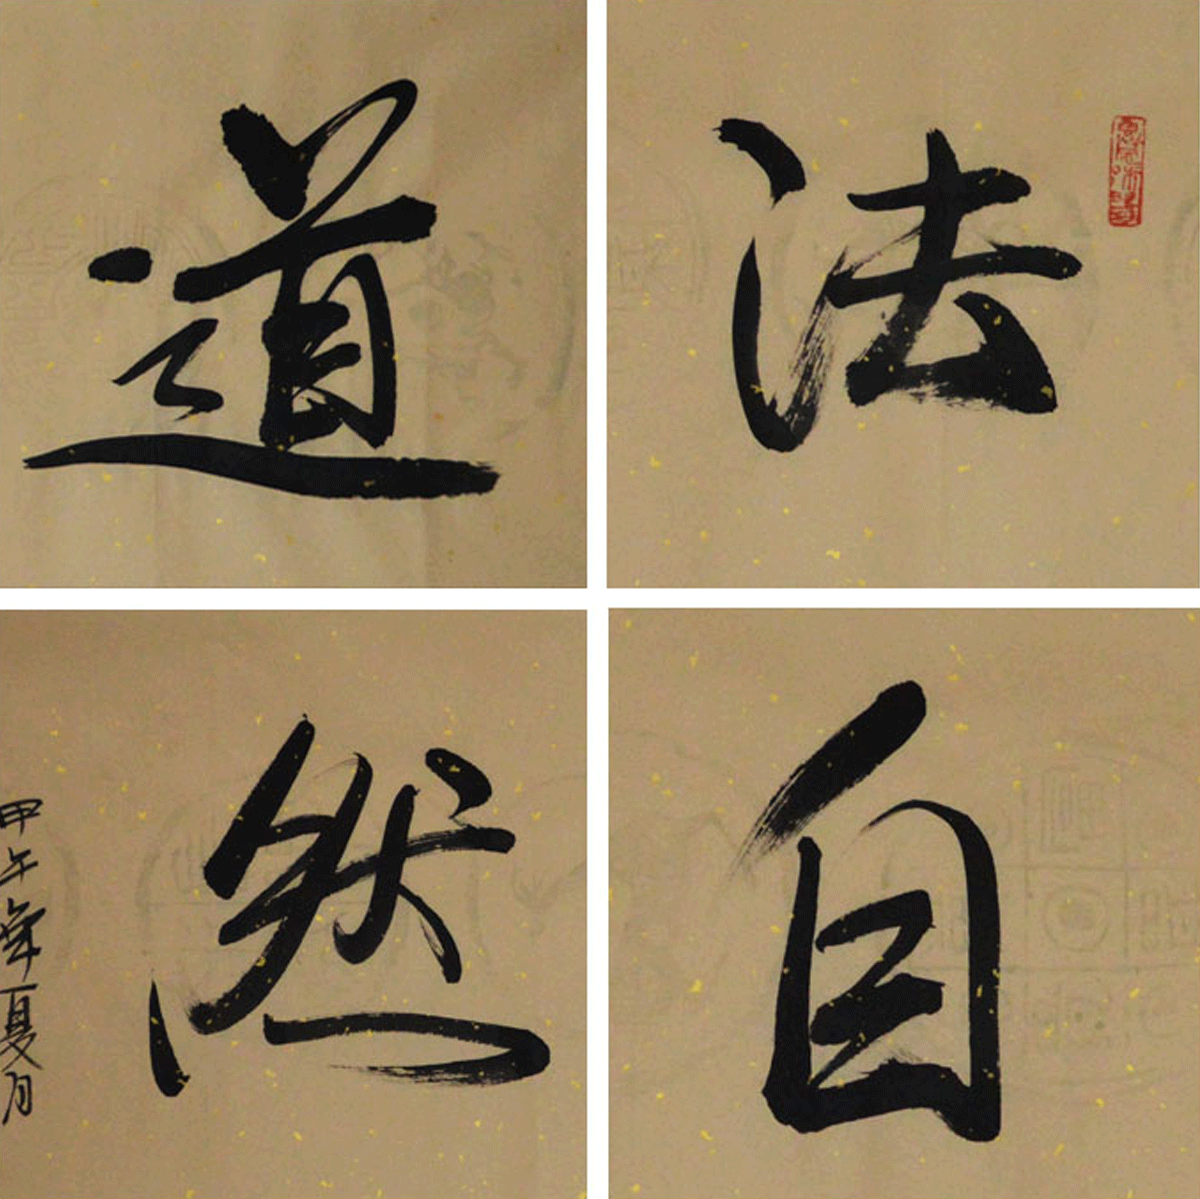 道法
自然
甲午年夏月